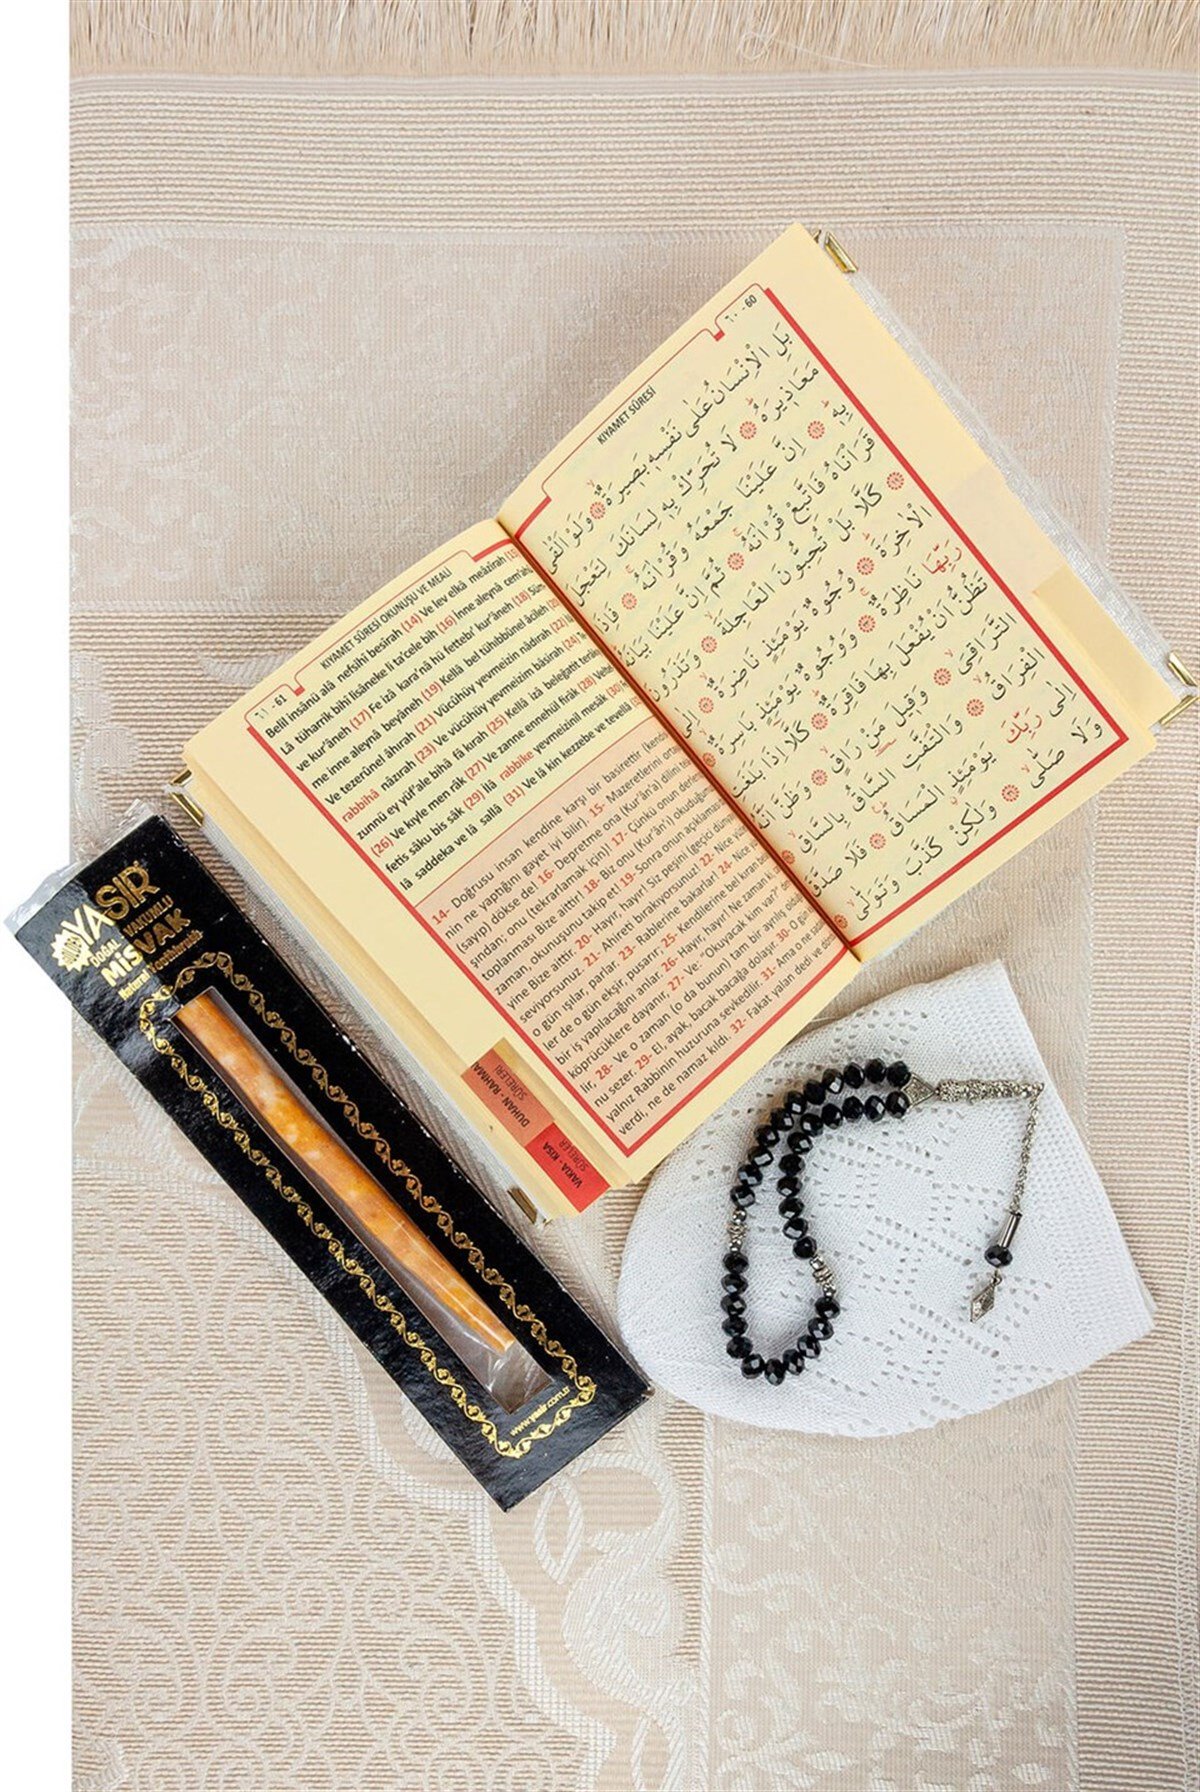 ٦٠ - 60
KIYAMET SÛRESİ
بَلِ الْاِنْسَانُ عَلٰى نَفْسِهٖ بَصٖيرَةٌ وَلَوْ اَلْقٰى
مَعَاذٖيرَهُ لَا تُحَرِّكْ بِهٖ لِسَانَكَ لِتَعْجَلَ
بِهٖ اِنَّ عَلَيْنَا جَمْعَهُ وَقُرْاٰنَهُ فَاِذَا
قَرَاْنَاهُ فَاتَّبِعْ قُرْاٰنَهُ ثُمَّ اِنَّ عَلَيْنَا بَيَانَهُ
كَلَّا بَلْ تُحِبُّونَ الْعَاجِلَةَ وَتَذَرُونَ
الْاٰخِرَةَ وُجُوهٌ يَوْمَئِذٍ نَاضِرَةٌ اِلٰى
رَبِّهَا نَاظِرَةٌ وَوُجُوهٌ يَوْمَئِذٍ بَاسِرَةٌ
تَظُنُّ اَنْ يُفْعَلَ بِهَا فَاقِرَةٌ كَلَّا اِذَا بَلَغَتِ
التَّرَاقِىَ وَقٖيلَ مَنْ رَاقٍ وَظَنَّ اَنَّهُ
الْفِرَاقُ وَالْتَفَّتِ السَّاقُ بِالسَّاقِ
اِلٰى رَبِّكَ يَوْمَئِذٍ الْمَسَاقُ فَلَا صَدَّقَ
وَلَا صَلّٰى وَلٰكِنْ كَذَّبَ وَتَوَلّٰى
٦١ - 61
KIYAMET SÛRESİ OKUNUŞU VE MEALİ
Belil İnsânü alâ nefsihî besîrah (14) Ve lev elkâ meâzîrah (15)
Lâ tüharrik bihî lisâneke li ta'cele bih (16) İnne aleynâ cem'ahû
ve kur'âneh (17) Fe izâ kara'nâ hü fettebi' kur'âneh (18) Süm
me inne aleynâ beyâneh (19) Kellâ bel tühibbûnel âcileh (20)
Ve tezerûnel âhırah (21) Vücûhüy yevmeizin nâdırah (22) İlâ
rabbihâ nâzırah (23) Ve vücûhüy yevmeizim bâsirah (24) Te
zunnü ey yüf'ale bihâ fâ kırah (25) Kellâ izâ beleğatit terâkıy
(26) Ve kıyle men râk (27) Ve zanne ennehül firâk (28) Velte
fetis sâku bis sâk (29) İlâ rabbike yevmeizinil mesâk (30)
lâ saddeka ve lâ sallâ (31) Ve lâ kin kezzebe ve tevellâ
14- Doğrusu insan kendine karşı bir basirettir (kendi
nin ne yaptığını gayet iyi bilir). 15- Mazeretlerini ortaya
(sayıp) dökse de! 16- Depretme ona (Kur'ân'a) dilini
şından; onu (tekrarlamak için)! 17- Çünkü onun derlen
toplanması Bize aittir! 18- Biz onu (Kur'ân'ı) okuduğumuz
zaman, okunuşunu takip et! 19- Sonra onun açıklaması
yine Bize aittir. 20- Hayır, hayır! Siz peşini (geçici dünyayı)
seviyorsunuz. 21- Ahireti bırakıyorsunuz! 22- Nice yüz
o gün ışılar, parlar. 23- Rablerine bakarlar! 24- Nice
ler de o gün ekşir, pusarır. 25- Kendilerine bel kıran
bir iş yapılacağını anlar. 26- Hayır, hayır! Ne zaman ki
köprücüklere dayanır, 27- Ve: "Okuyacak kim var?"
lir, 28- Ve o zaman (o da bunun) tam bir ayrılış olduğunu
nu sezer. 29- El, ayak, bacak bacağa dolaşır. 30- O gün
yalnız Rabbinin huzuruna sevkedilir. 31- Ama o ne
verdi, ne de namaz kıldı. 32- Fakat yalan dedi ve
DUHAN - RAHMAN
SÛRELERİ
VAKIA - KISA
SÛRELER
YASİR
DOĞAL VAKUMLU
MİSVAK
Natural Toothbrush
www.yasir.com.tr